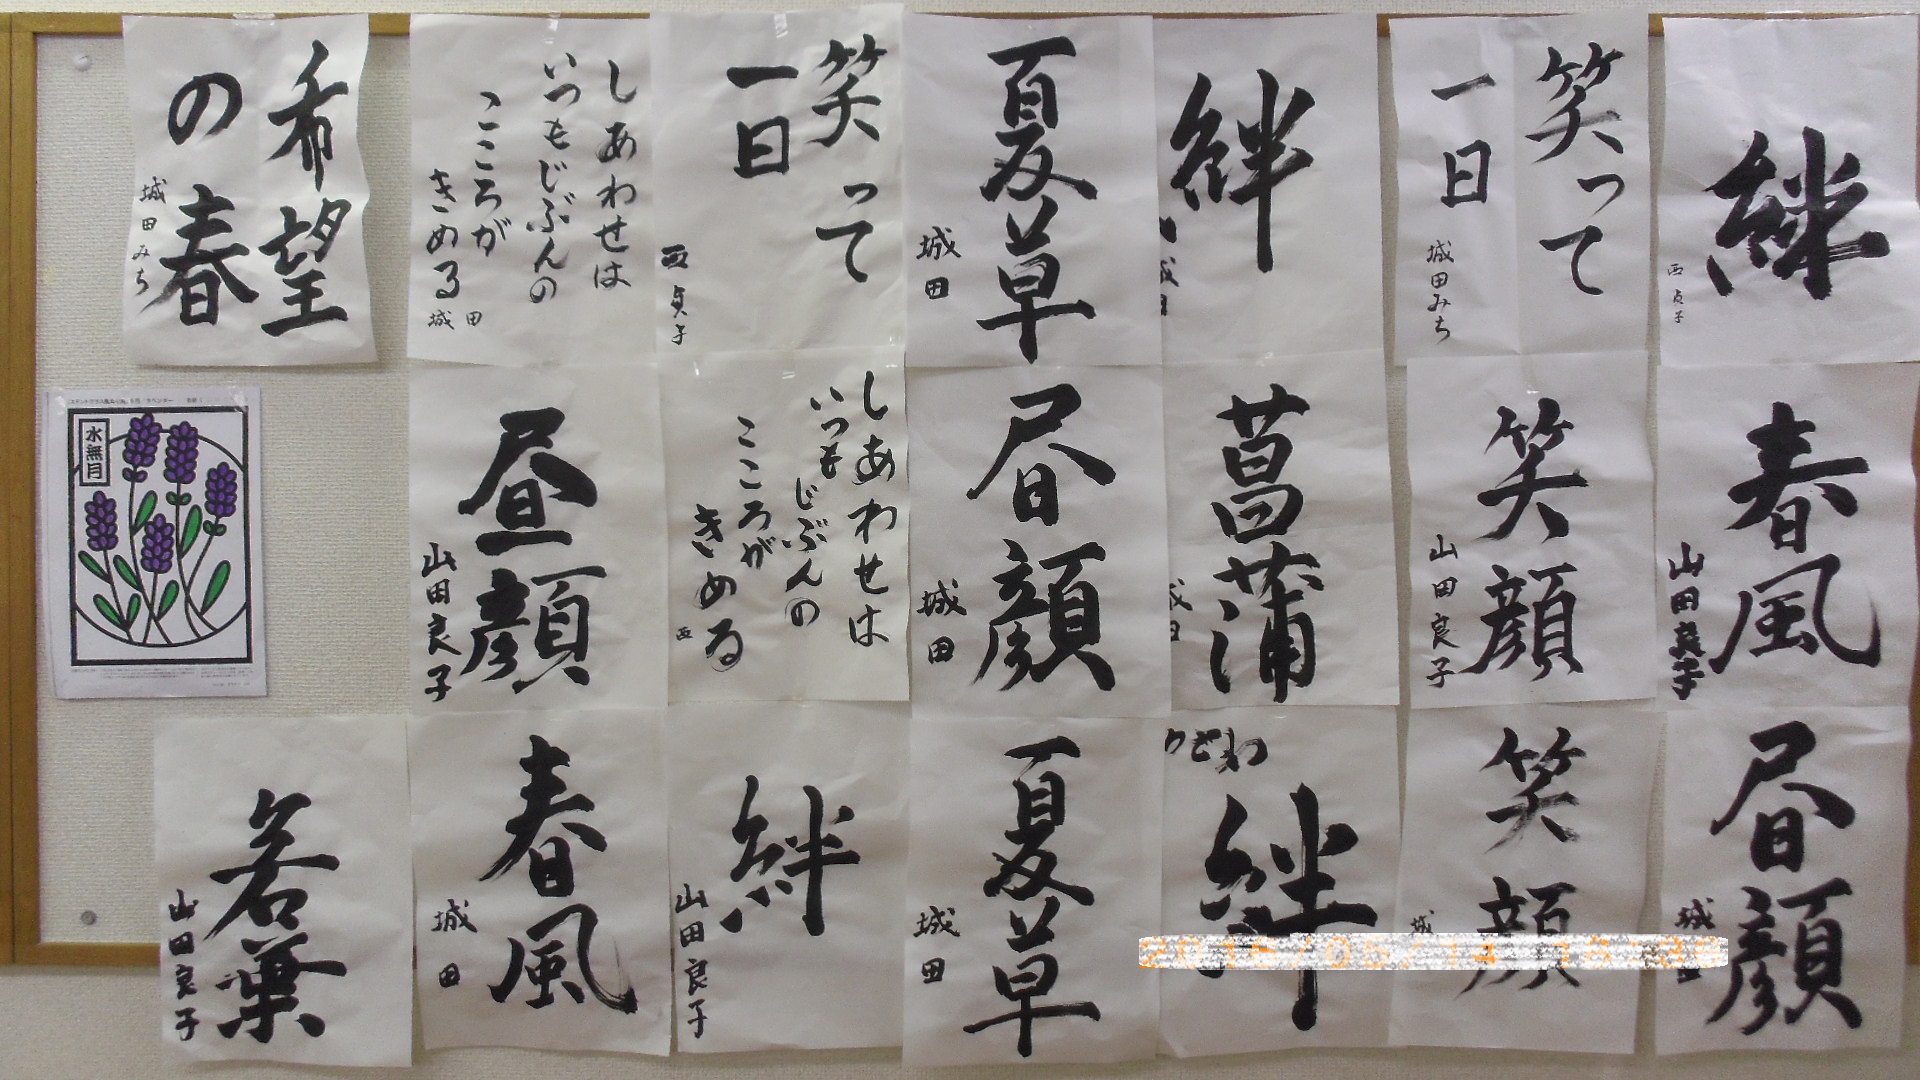 希望
の春
城田みち
しあわせは
いつもじぶんの
こころが
きめる
城田
笑って
一日
西貞子
夏草
城田
絆
笑って
一日
城田みち
絆
西貞子
水無月
昼顔
山田良子
しあわせは
いつもじぶんの
こころが
きめる
西
昼顔
城田
菖蒲
笑顔
山田良子
春風
山田良子
若葉
山田良子
春風
城田
絆
山田良子
夏草
城田
絆
笑顔
城
昼顔
城